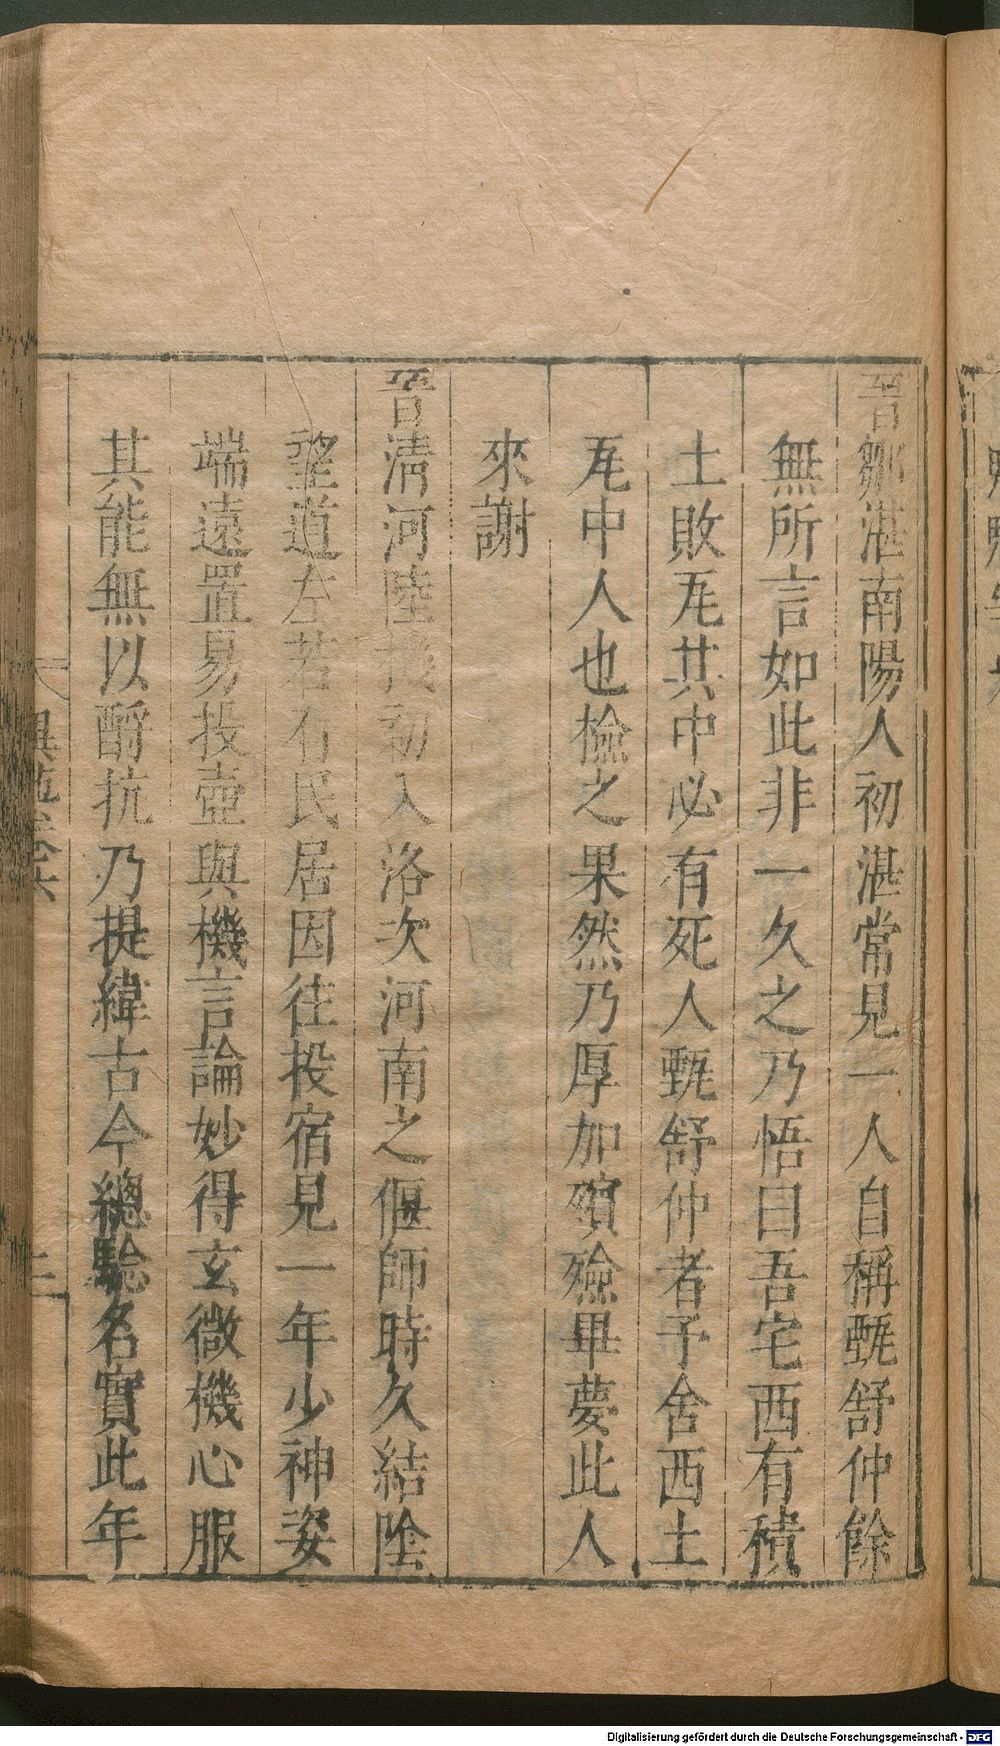 晉鄒湛南陽人初湛常見一人自稱甄舒仲餘
無所言如此非一久之乃悟曰吾宅西有積
土敗瓦其中必有死人甄舒仲者予舍西土
瓦中人也檢之果然乃厚加殯殮畢夢此人
來謝
晉清河陸機初入洛次河南之偃師時久結陰
望道左若有民居因往投宿見一年少神姿
端遠置易投壺與機言論妙得玄微機心服
其能無以酧抗乃提緯古今總驗名實此年
異苑卷六
Digitalisierung gefördert durch die Deutsche Forschungsgemeinschaft - DFG